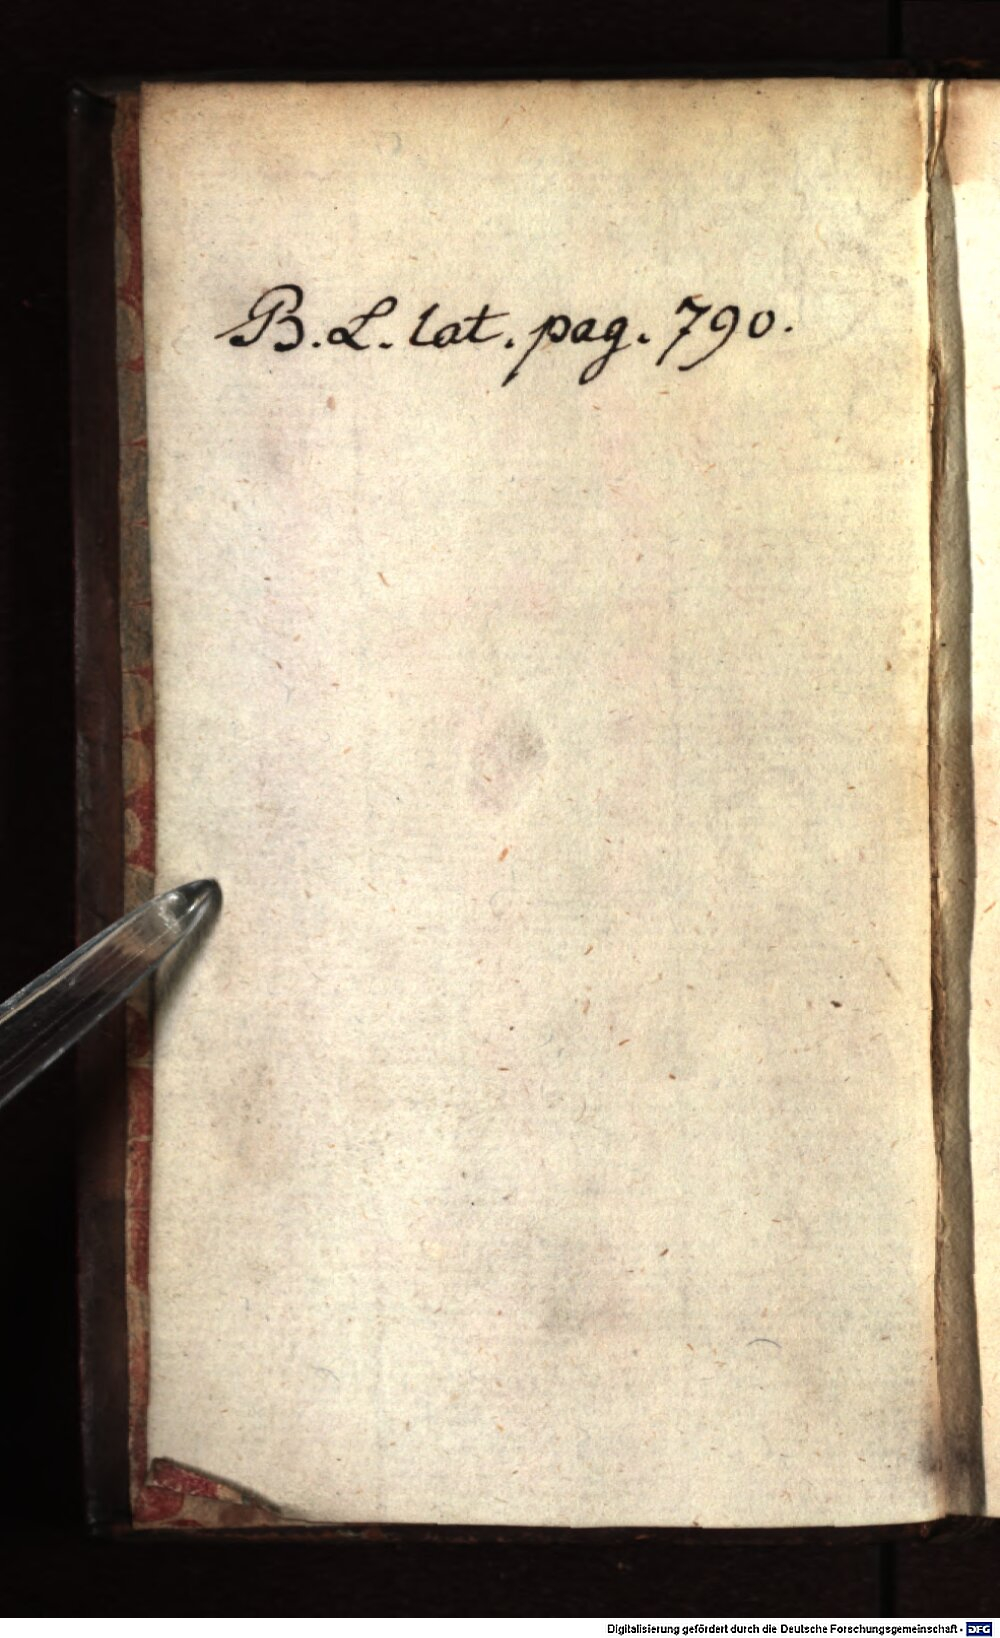 B. L. lat. pag. 790.
Digitalisierung gefördert durch die Deutsche Forschungsgemeinschaft - DFG